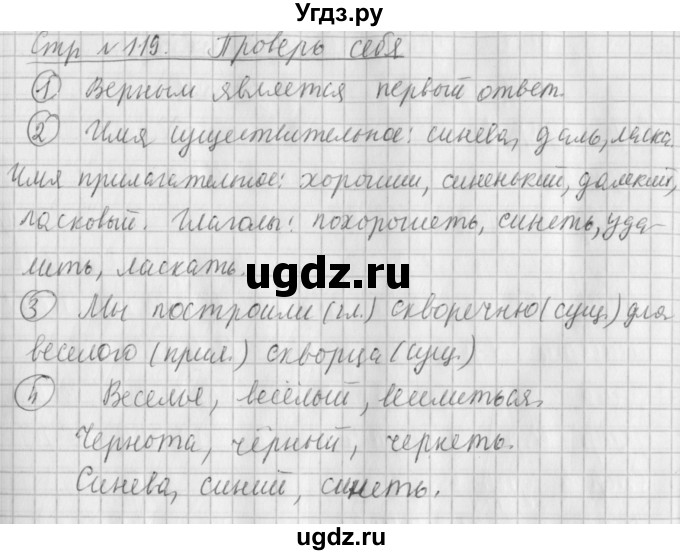 Угдз.ру
Стр №119. Проверь себя
① Верным является первый ответ.
② Имя существительное: синева, даль, ласка.
Имя прилагательное: хороший, синенький, далекий,
ласковый. Глаголы: похорошеть, синеть, уда-
лить, ласкать.
ugdz.ru
③ Мы построили (гл.) скворечню (сущ.) для
веселого (прил.) скворца (сущ.)
④ Веселье, весёлый, веселиться,
Чернота, чёрный, чернеть.
Синева, синий, синеть.
ugdz.ru